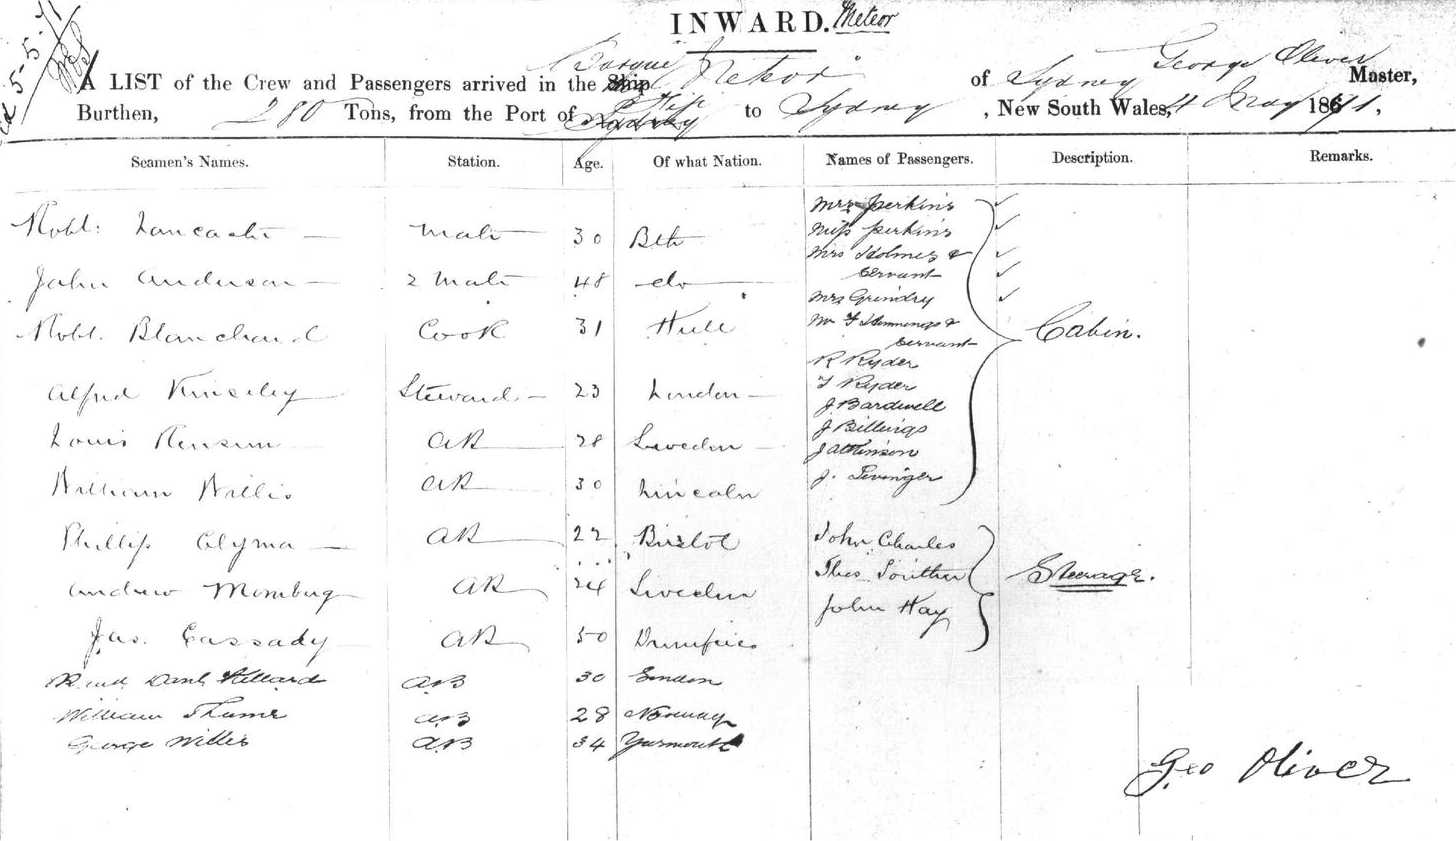 INWARD. Meteor
5-5-71
A LIST of the Crew and Passengers arrived in the Ship Barque Meteor of Sydney George Oliver Master,
Burthen, 280 Tons, from the Port of Fiji to Sydney, New South Wales, 4 May 1871.
Seamen's Names. Station. Age. Of what Nation. Names of Passengers. Description. Remarks.
Robt. Lancaster Mate 30 Bth
John Anderson 2 Mate 48 do
Robt. Blanchard Cook 31 Hull
Alfred Kinseley Steward 23 London
Louis AB 28 Sweden
William Willis AB 30 Lincoln
Phillip Clyma AB 22 Bristol
Andrew AB 24 Sweden
Jas. Cassady AB 50 Dumfries
AB 30 London
William AB 28 Norway
George Willis AB 34 Yarmouth
Mrs Perkins
Miss Perkins
Mrs Holmes &
Servant
Mrs Grindry
Mr F Hemmings &
Servant
R Ryder
F Ryder
J Bardwell
J Billings
J Atkinson
J. Levinger
Cabin.
John Charles
Thos Souther
John Hay
Steerage.
Geo Oliver